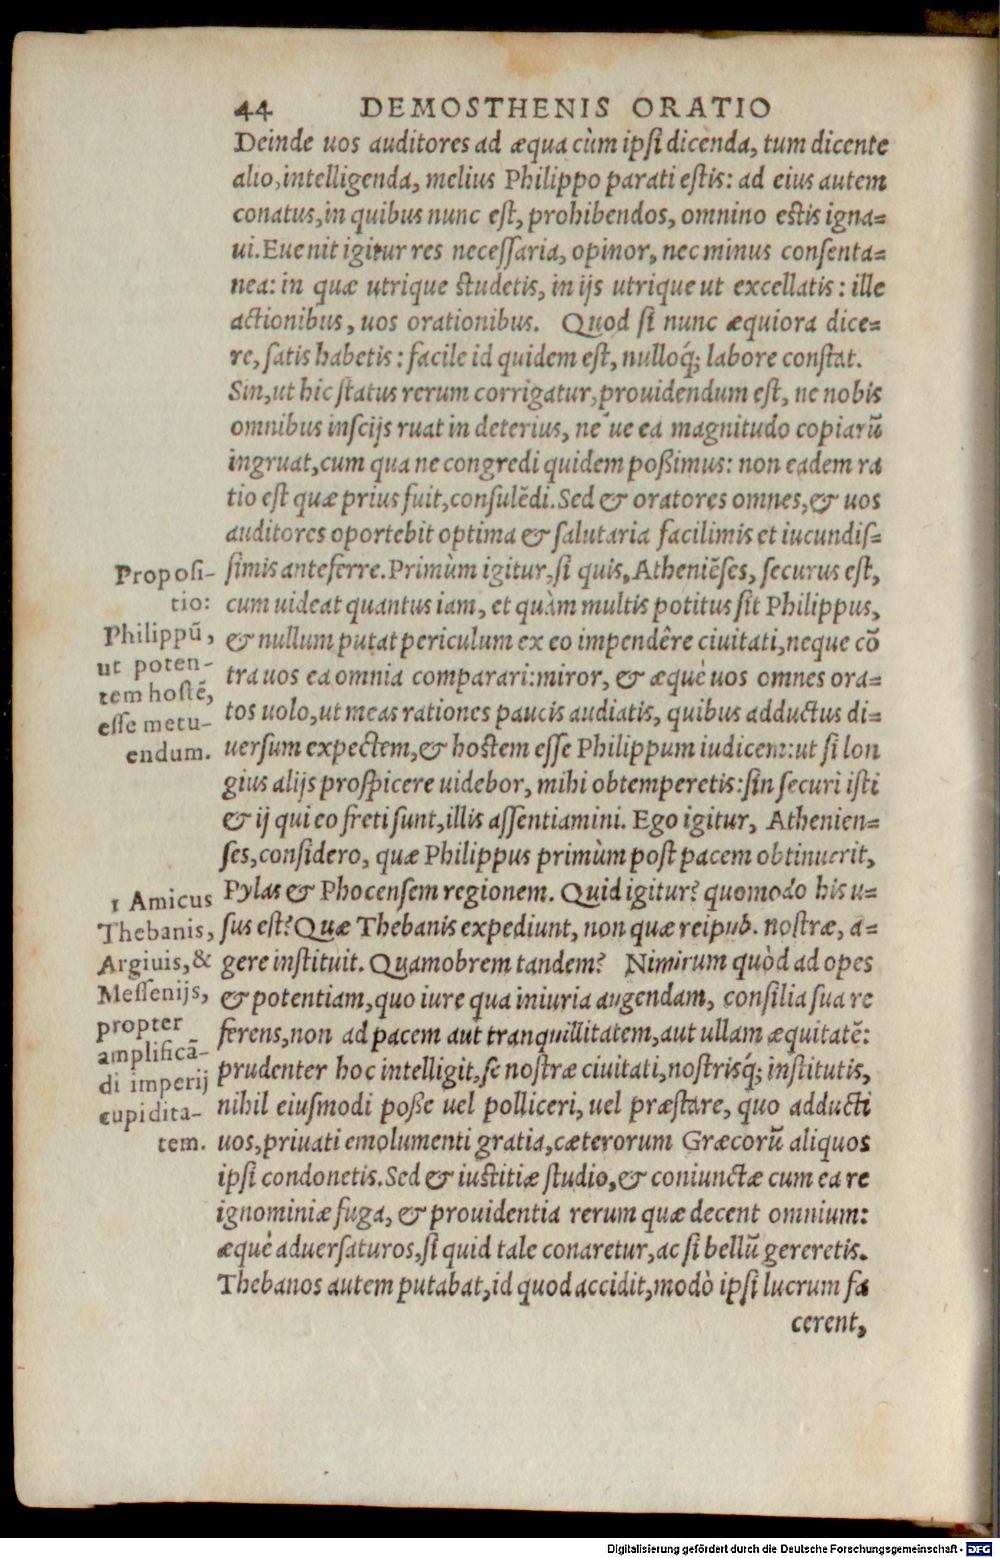 44 DEMOSTHENIS ORATIO
Deinde uos auditores ad æqua cùm ipsi dicenda, tum dicente
alio, intelligenda, melius Philippo parati estis: ad eius autem
conatus, in quibus nunc est, prohibendos, omnino estis igna=
ui. Euenit igitur res necessaria, opinor, nec minus consenta=
nea: in quæ utrique studetis, in ijs utrique ut excellatis: ille
actionibus, uos orationibus. Quod si nunc æquiora dice=
re, satis habetis: facile id quidem est, nulloq́; labore constat.
Sin, ut hic status rerum corrigatur, prouidendum est, ne nobis
omnibus inscijs ruat in deterius, ne ue ea magnitudo copiarũ
ingruat, cum qua ne congredi quidem poßimus: non eadem ra
tio est quæ prius fuit, consulẽdi. Sed & oratores omnes, & uos
auditores oportebit optima & salutaria facilimis et iucundis=
simis anteferre. Primùm igitur, si quis, Atheniẽses, securus est,
cum uideat quantus iam, et quàm multis potitus sit Philippus,
& nullum putat periculum ex eo impendêre ciuitati, neque cõ
tra uos ea omnia comparari: miror, & æquè uos omnes ora=
tos uolo, ut meas rationes paucis audiatis, quibus adductus di=
uersum expectem, & hostem esse Philippum iudicem: ut si lon
gius alijs prospicere uidebor, mihi obtemperetis: sin securi isti
& ij qui eo freti sunt, illis assentiamini. Ego igitur, Athenien=
ses, considero, quæ Philippus primùm post pacem obtinuerit,
Pylas & Phocensem regionem. Quid igitur? quomodo his u=
sus est? Quæ Thebanis expediunt, non quæ reipub. nostræ, a=
gere instituit. Quamobrem tandem? Nimirum quòd ad opes
& potentiam, quo iure qua iniuria augendam, consilia sua re
ferens, non ad pacem aut tranquillitatem, aut ullam æquitatẽ:
prudenter hoc intelligit, se nostræ ciuitati, nostrisq́; institutis,
nihil eiusmodi poße uel polliceri, uel præstare, quo adducti
uos, priuati emolumenti gratia, cæterorum Græcorũ aliquos
ipsi condonetis. Sed & iustitiæ studio, & coniunctæ cum ea re
ignominiæ fuga, & prouidentia rerum quæ decent omnium:
æquè aduersaturos, si quid tale conaretur, ac si bellũ gereretis.
Thebanos autem putabat, id quod accidit, modò ipsi lucrum fa
cerent,
Proposi-
tio:
Philippũ,
ut poten-
tem hostẽ,
esse metu-
endum.
1 Amicus
Thebanis,
Argiuis, &
Messenijs,
propter
amplificã-
di imperij
cupidita-
tem.
Digitalisierung gefördert durch die Deutsche Forschungsgemeinschaft - DFG